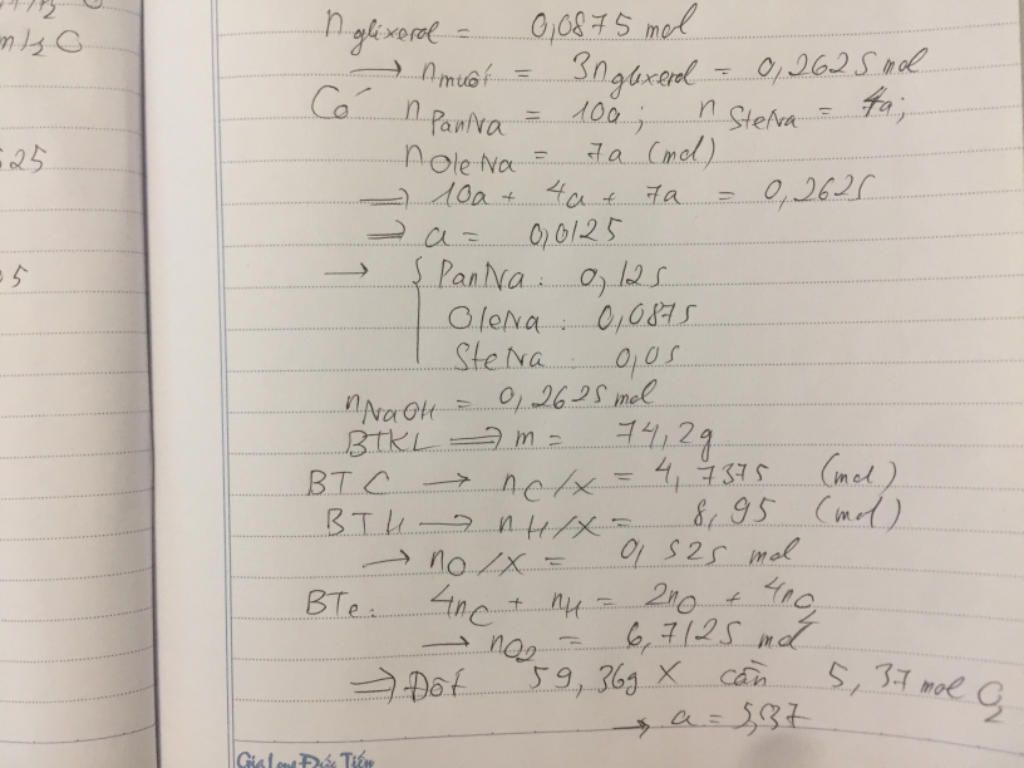 m H2 O
525
05
n glixerol = 0,0875 mol
→ n muối = 3n glixerol = 0,2625 mol
Có n PanNa = 10a ; n SteNa = 4a ;
n OleNa = 7a (mol)
⇒ 10a + 4a + 7a = 0,2625
⇒ a = 0,0125
→ { PanNa : 0,125
OleNa : 0,0875
SteNa : 0,05
n NaOH = 0,2625 mol
BTKL ⇒ m = 74,2g
BTC → nC/X = 4,7375 (mol)
BTH → nH/X = 8,95 (mol)
→ nO/X = 0,525 mol
BTe : 4nC + nH = 2nO + 4nO2
→ nO2 = 6,7125 mol
⇒ Đốt 59,36g X cần 5,37 mol O2
→ a = 5,37
Gia Long Đức Tiến